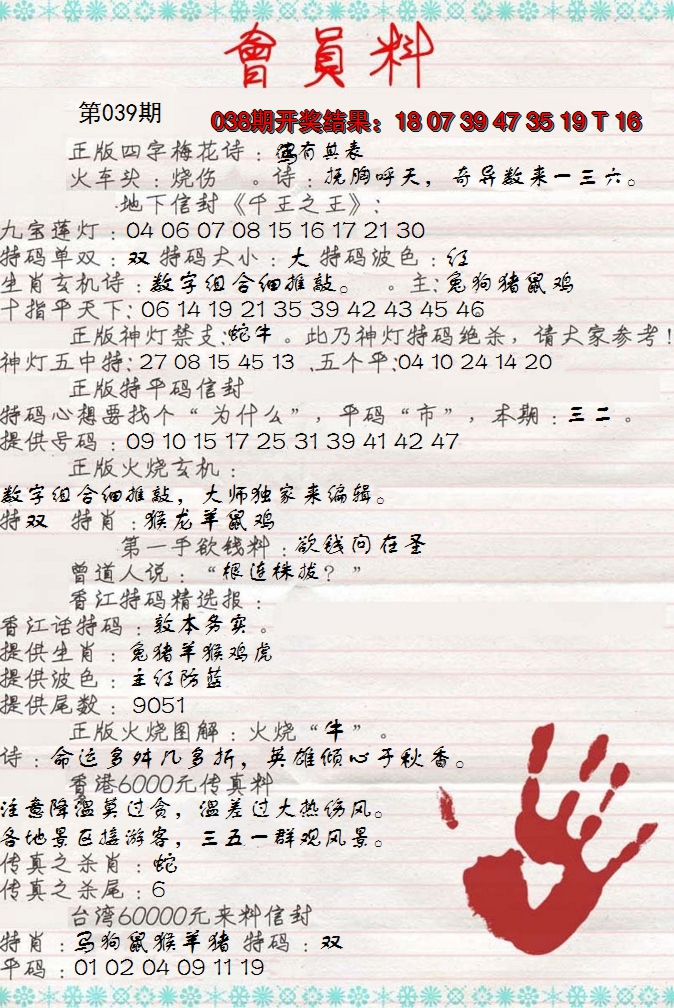 會員料
第039期
038期开奖结果：18 07 39 47 35 19 T 16
正版四字梅花诗：徒有其表
火车头：烧伤 。诗：抚胸呼天，奇异数来一三六。
地下信封《千王之王》：
九宝莲灯：04 06 07 08 15 16 17 21 30
特码单双：双 特码大小：大 特码波色：红
生肖玄机诗：数字组合细推敲。 。主：兔狗猪鼠鸡
十指平天下：06 14 19 21 35 39 42 43 45 46
正版神灯禁支：蛇牛 。此乃神灯特码绝杀，请大家参考！
神灯五中特：27 08 15 45 13 、五个平：04 10 24 14 20
正版特平码信封
特码心想要找个“为什么”，平码“市”，本期：三二 。
提供号码：09 10 15 17 25 31 39 41 42 47
正版火烧玄机：
数字组合细推敲，大师独家来编辑。
特双 特肖：猴龙羊鼠鸡
第一手欲钱料：欲钱问在圣
曾道人说：“根连株拔？”
香江特码精选报：
香江话特码：敦本务实 。
提供生肖：兔猪羊猴鸡虎
提供波色：主红防蓝
提供尾数：9051
正版火烧图解：火烧“牛”。
诗：命运多舛几多折，英雄倾心于秋香。
香港6000元传真料
注意降温莫过贪，温差过大热伤风。
各地景区接游客，三五一群观风景。
传真之杀肖：蛇
传真之杀尾：6
台湾60000元来料信封
特肖：马狗鼠猴羊猪 特码：双
平码：01 02 04 09 11 19